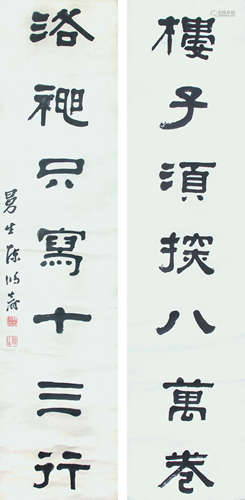 樓子須探八萬卷
洛神只寫十三行
曼生陳鴻壽